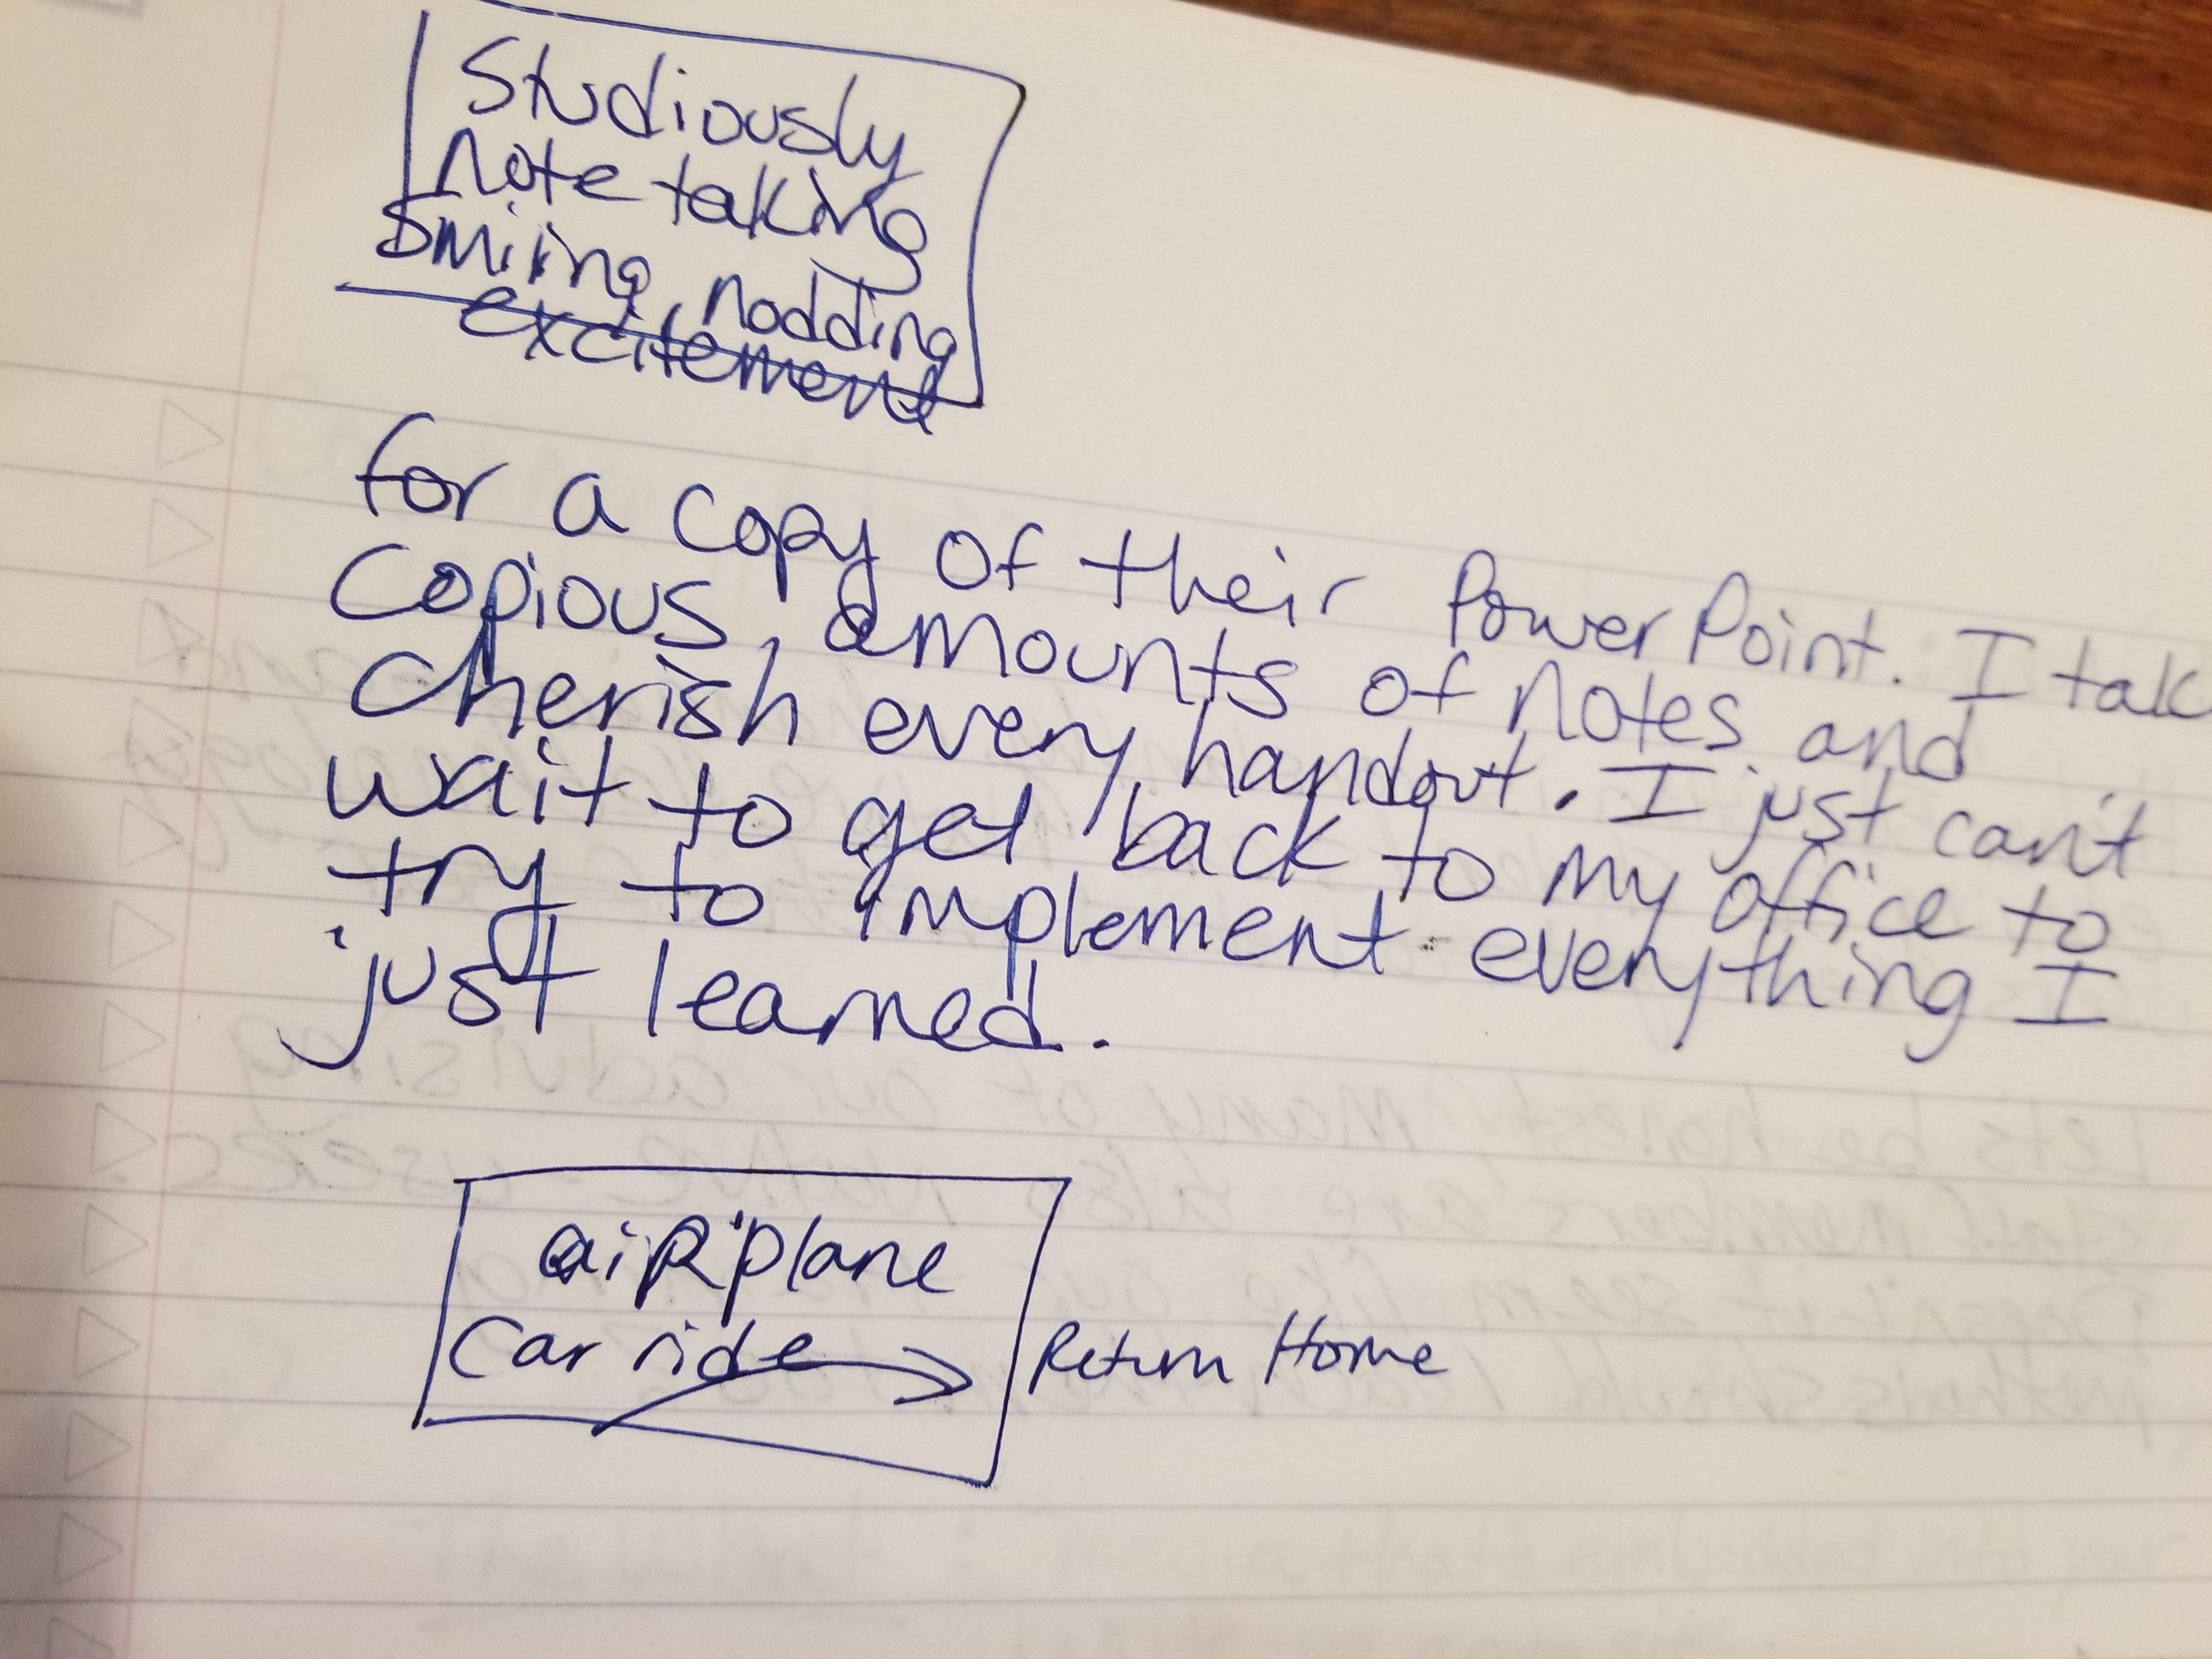 Studiously
Note taking
Smiling, nodding
excitement
for a copy of their PowerPoint. I tak
copious amounts of notes and
cherish every handout. I just can't
wait to get back to my office to
try to implement everything I
just learned.
airplane
Car ride
Return Home